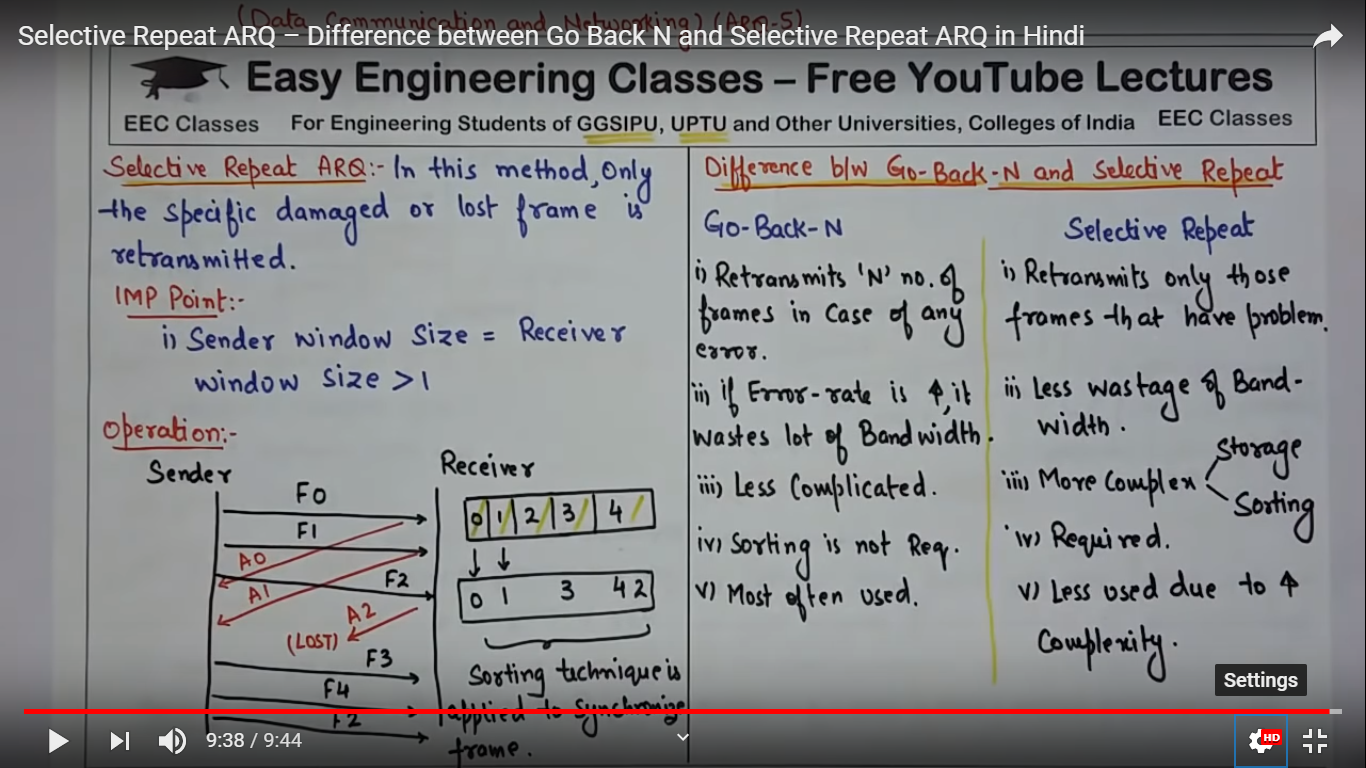 (Data Communication and Networking) (ARQ-5)
Selective Repeat ARQ – Difference between Go Back N and Selective Repeat ARQ in Hindi
Easy Engineering Classes – Free YouTube Lectures
EEC Classes For Engineering Students of GGSIPU, UPTU and Other Universities, Colleges of India EEC Classes
Selective Repeat ARQ:- In this method, Only
the specific damaged or lost frame is
retransmitted.
IMP Point:-
i) Sender window Size = Receiver
window size >1
Operation:-
Sender Receiver
F0
F1
A0
A1
F2
A2
(LOST)
F3
F4
F2
0 1 2 3 4
0 1 3 4 2
Sorting technique is
applied to synchronize
frame.
Difference b/w Go-Back-N and Selective Repeat
Go-Back-N
i) Retransmits 'N' no. of
frames in Case of any
error.
ii) if Error-rate is ↑, it
wastes lot of Bandwidth.
iii) Less Complicated.
iv) Sorting is not Req.
v) Most often used.
Selective Repeat
i) Retransmits only those
frames that have problem.
ii) Less wastage of Band-
width.
iii) More Complex
Storage
Sorting
iv) Required.
v) Less used due to ↑
Complexity.
Settings
9:38 / 9:44
HD